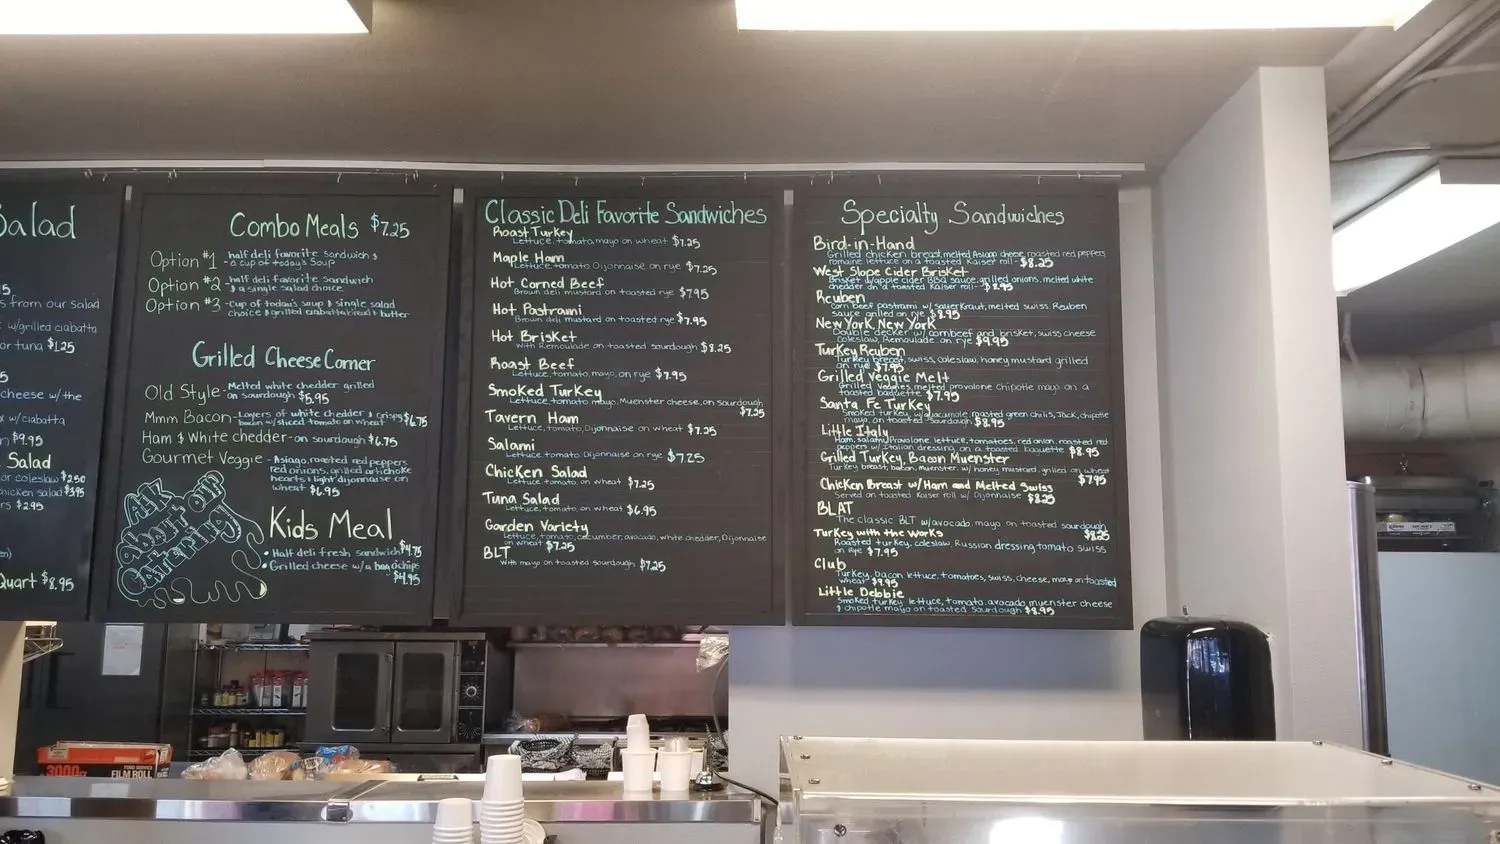 Salad
s from our salad
w/grilled ciabatta
or tuna $1.25
cheese w/ the
w/ciabatta
$9.95
Salad
or coleslaw $2.50
chicken salad $3.95
rs $2.95
Quart $8.95
Combo Meals $7.25
Option #1 - half deli favorite sandwich &
a cup of today's soup
Option #2 - half deli favorite sandwich
& a single salad choice
Option #3 - Cup of today's soup & single salad
choice & grilled ciabatta bread & butter
Grilled Cheese Corner
Old Style - Melted white chedder grilled
on sourdough $5.95
Mmm Bacon - Layers of white chedder & crispy $6.75
bacon w/sliced tomato on wheat
Ham & White chedder - on sourdough $6.75
Gourmet Veggie - Asiago, roasted red peppers
red onions, grilled artichoke
hearts & light dijonnaise on
wheat $6.95
Ask
about our
Catering!
Kids Meal
• Half deli fresh sandwich $4.75
• Grilled cheese w/a bag o chips
$4.95
Classic Deli Favorite Sandwiches
Roast Turkey
Lettuce, tomato, mayo on wheat $7.25
Maple Ham
Lettuce, tomato, Dijonnaise on rye $7.25
Hot Corned Beef
Brown deli mustard on toasted rye $7.95
Hot Pastrami
Brown deli mustard on toasted rye $7.95
Hot Brisket
With Remoulade on toasted sourdough $8.25
Roast Beef
Lettuce, tomato, mayo, on rye $7.95
Smoked Turkey
Lettuce, tomato, mayo, Muenster cheese, on sourdough
$7.25
Tavern Ham
Lettuce, tomato, Dijonnaise on wheat $7.25
Salami
Lettuce, tomato Dijonnaise on rye $7.25
Chicken Salad
Lettuce, tomato, on wheat $7.25
Tuna Salad
Lettuce, tomato, on wheat $6.95
Garden Variety
Lettuce, tomato, cucumber, avocado, white chedder, Dijonnaise
on wheat $7.25
BLT
With mayo on toasted sourdough $7.25
Specialty Sandwiches
Bird-in-Hand
Grilled chicken breast, melted Asiago cheese, roasted red peppers
romaine lettuce on a toasted Kaiser roll - $8.25
West Slope Cider Brisket
Brisket w/apple cider BBQ sauce, grilled onions, melted white
chedder on a toasted Kaiser roll - $8.95
Reuben
Corn beef pastrami w/ sauerkraut, melted swiss, Reuben
sauce grilled on rye $8.95
New York, New York
Double decker w/ cornbeef and brisket, swiss cheese
coleslaw, Remoulade on rye $9.95
Turkey Reuben
Turkey breast, swiss, coleslaw, honey mustard grilled
on rye $7.95
Grilled Veggie Melt
Grilled Veggies, melted provalone chipotle mayo on a
toasted baguette $7.95
Santa Fe Turkey
Smoked turkey, w/guacamole, roasted green chilis, Jack, chipotle
mayo, on toasted sourdough $8.95
Little Italy
Ham, salami, Provalone, lettuce, tomatoes, red onion, roasted red
peppers w/ Italian dressing on a toasted baguette $8.95
Grilled Turkey, Bacon Muenster
Turkey breast, bacon, muenster, w/ honey mustard, grilled on wheat
$7.95
Chicken Breast w/Ham and Melted Swiss
Served on toasted Kaiser roll w/ Dijonnaise $8.25
BLAT
The classic BLT w/avocado, mayo on toasted sourdough
$8.25
Turkey with the Works
Roasted turkey, coleslaw, Russian dressing, tomato swiss
on Rye $7.95
Club
Turkey, bacon lettuce, tomatoes, swiss, cheese, mayo on toasted
wheat $9.95
Little Debbie
Smoked turkey, lettuce, tomato, avocado, muenster cheese
& chipotle mayo on toasted sourdough $8.95
3000
FOOD SERVICE
FILM ROLL